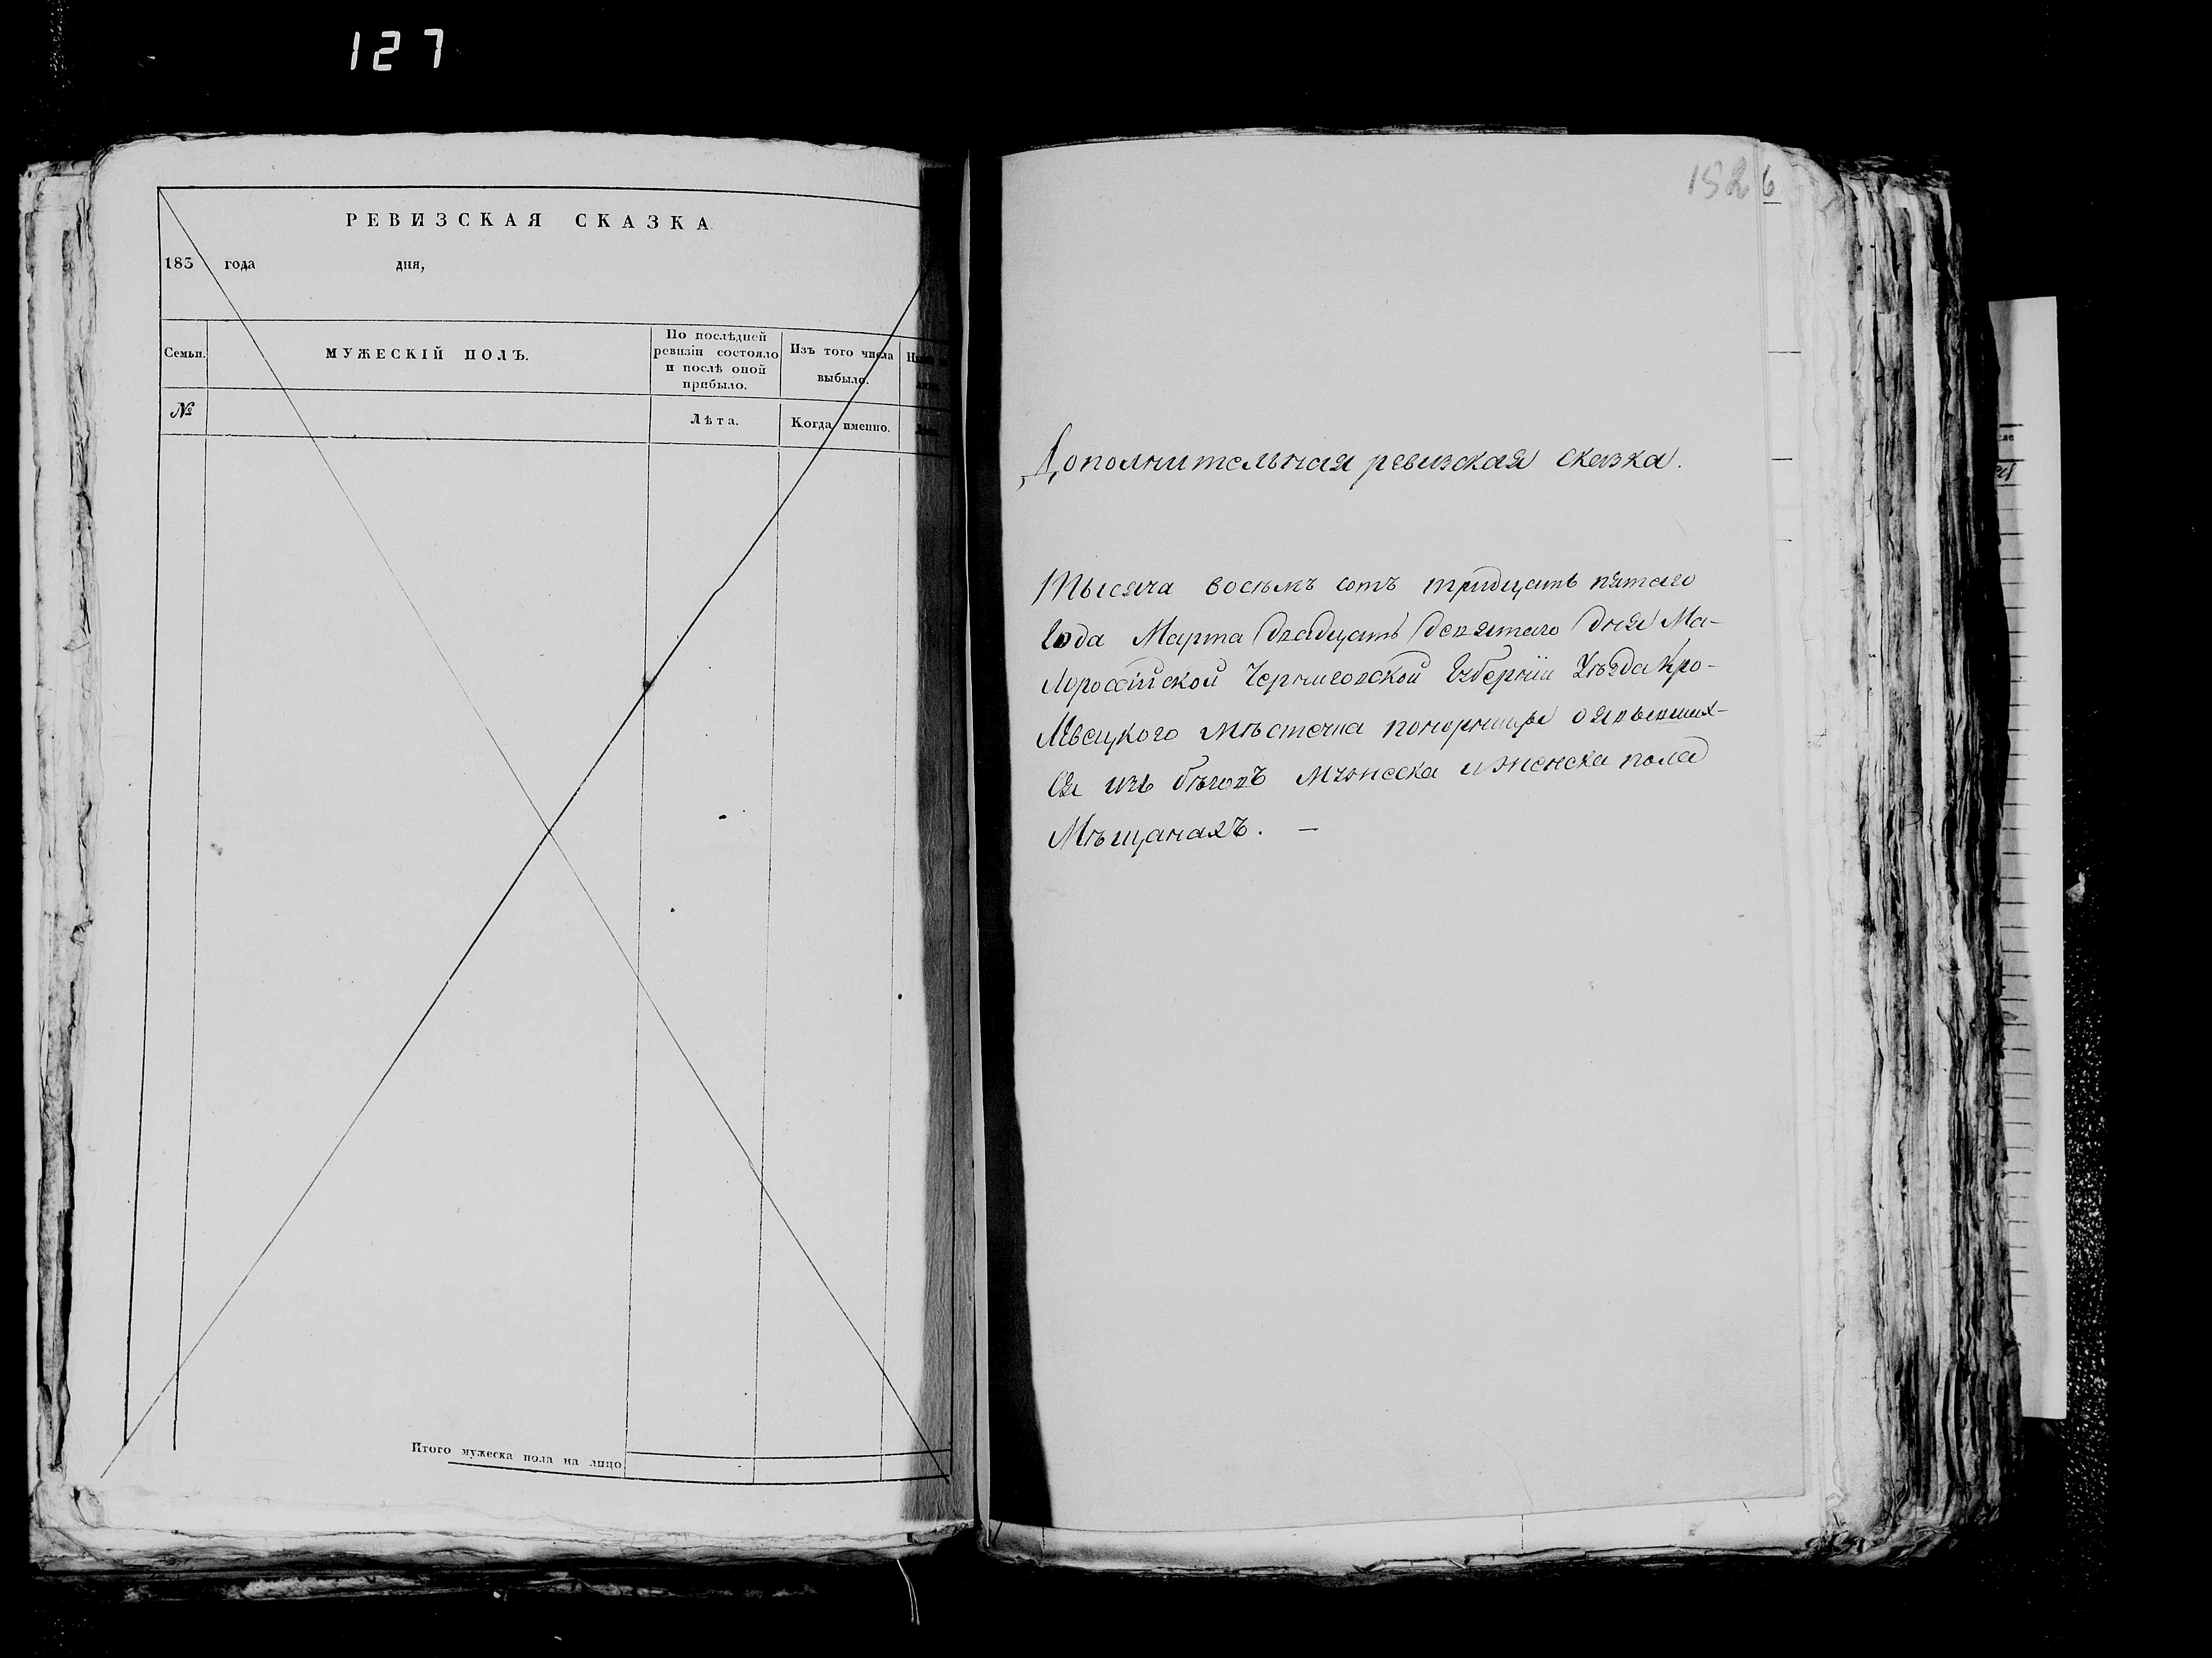 127
РЕВИЗСКАЯ СКАЗКА
183 года дня,
Семьи.
МУЖЕСКІЙ ПОЛЪ.
По послѣдней
ревизіи состояло
и послѣ оной
прибыло.
Изъ того числа
выбыло.
№
Лѣта.
Когда именно.
Итого мужеска пола на лицо
152
6
Дополнительная ревизская сказка.
Тысяча восьмъ сотъ тридцать пятаго
Года Марта двадцать девятаго дня Ма-
лоросійской Черниговской Губерніи Уѣзда Кро-
левецкого мѣстечка понорницы о явивших-
ся изъ бѣговъ мужеска и женска пола
Мѣщанахъ. —